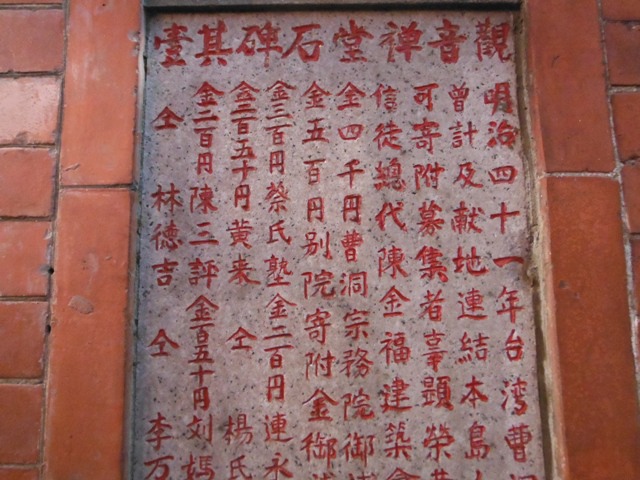 觀音禅堂石碑其壹
明治四十一年台湾曹
曾計及献地連結本島
可寄附募集者辜顕榮
信徒總代陳金福建築
仝四千円曹洞宗務院御
金五百円别院寄附金御
金三百円蔡氏塾金二百円連永
金二百五十円黄 仝楊氏
金二百円陳三評金百五十円刘媽
仝林德吉仝李万